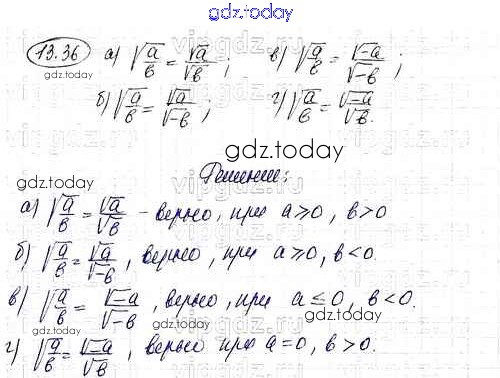 gdz.today
13.36 а) √a/b = √a/√b; в) √a/b = √-a/√-b;
gdz.today
б) √a/b = √a/√-b; г) √a/b = √-a/√b.
gdz.today
Решение:
gdz.today
а) √a/b = √a/√b - верно, при a≥0, b>0
б) √a/b = √a/√-b, верно, при a≥0, b<0.
в) √a/b = √-a/√-b, верно, при a≤0, b<0.
gdz.today
г) √a/b = √-a/√b, верно при a=0, b>0.
gdz.today